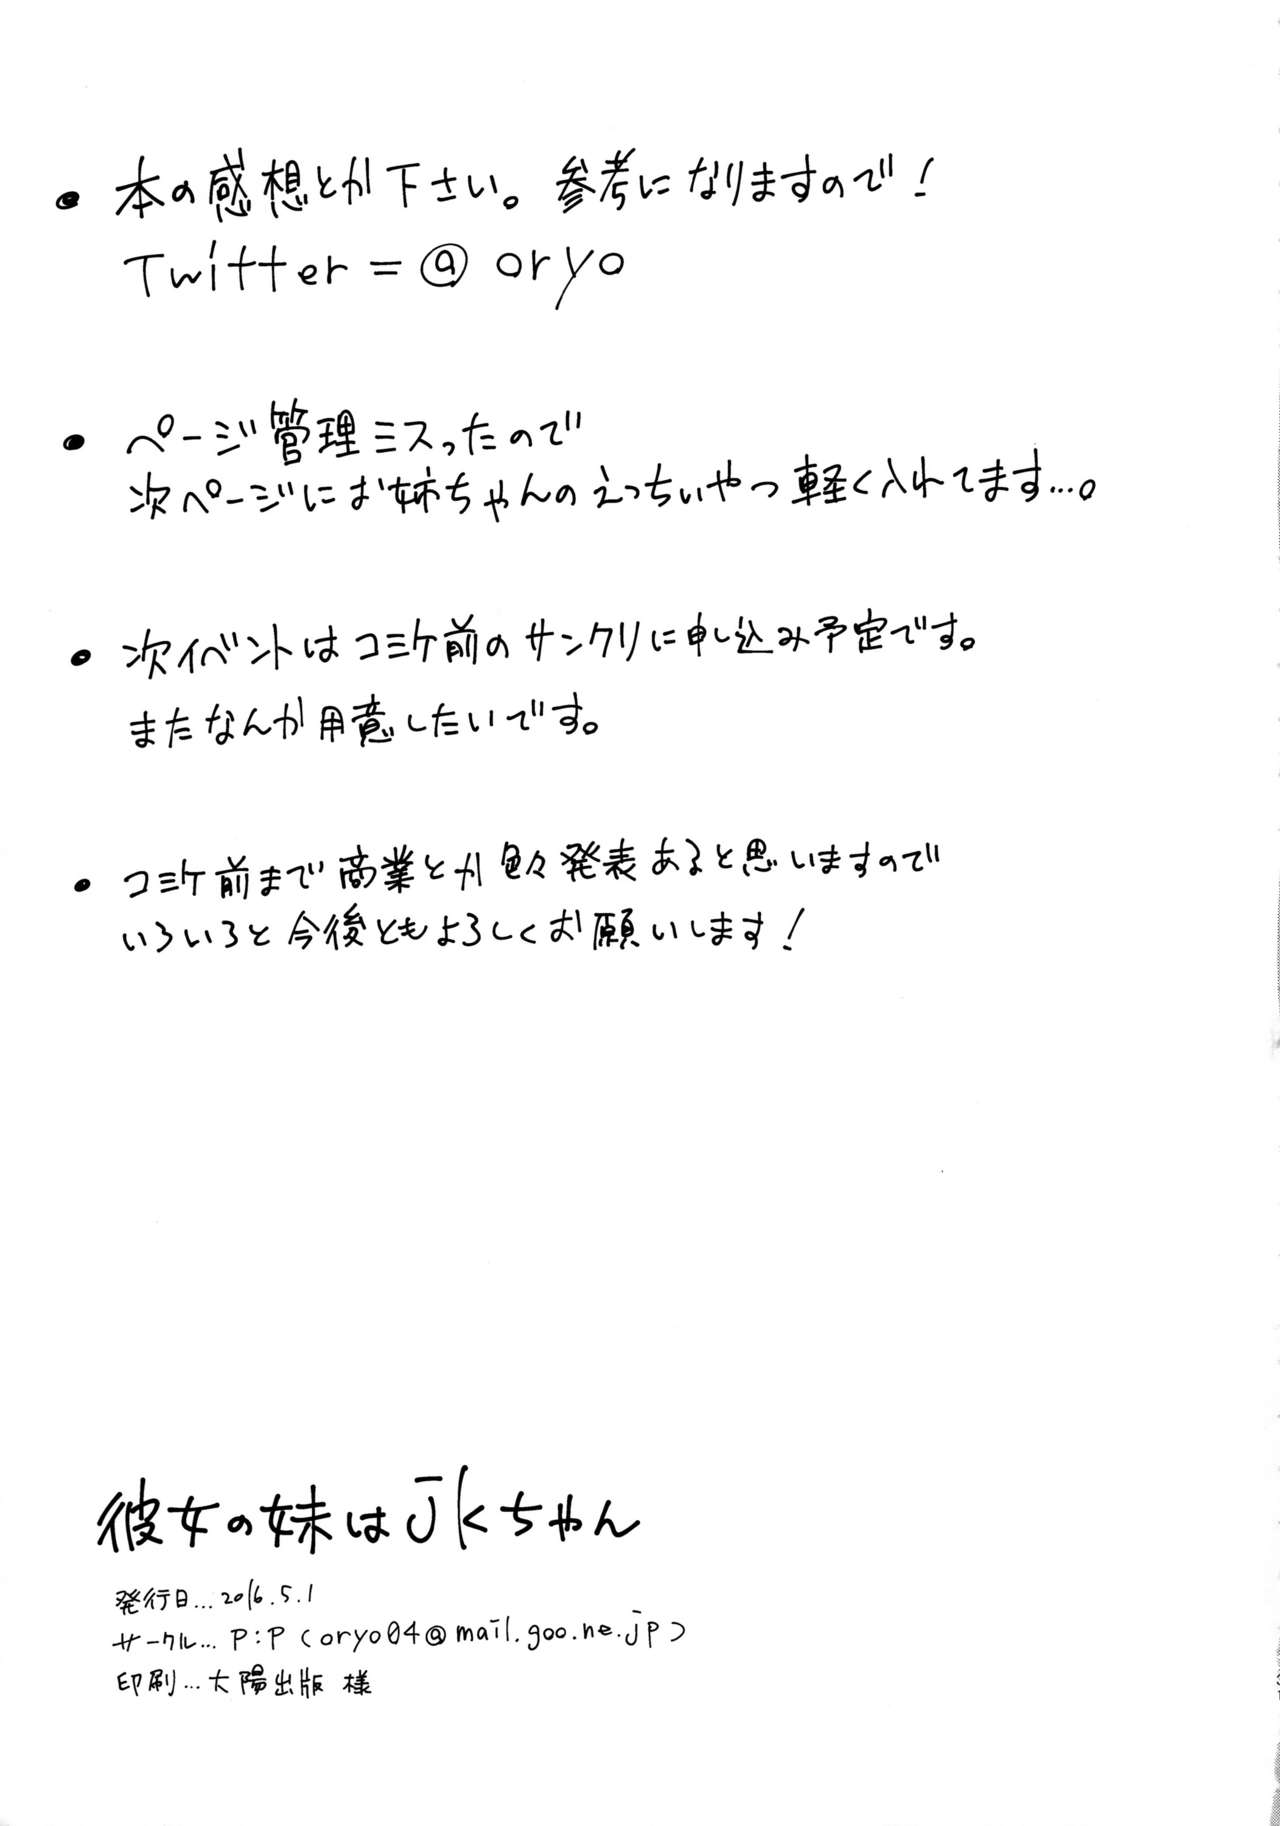 ● 本の感想とか下さい。参考になりますので！
Twitter = @ oryo
● ページ管理ミスったので
次ページにお姉ちゃんのえっちぃやつ軽く入れてます…。
● 次イベントはコミケ前のサンクリに申し込み予定です。
またなんか用意したいです。
● コミケ前まで商業とか色々発表あると思いますので
いろいろと今後ともよろしくお願いします！
彼女の妹はjkちゃん
発行日…2016.5.1
サークル…P:P（oryo04@mail.goo.ne.jp）
印刷…太陽出版 様